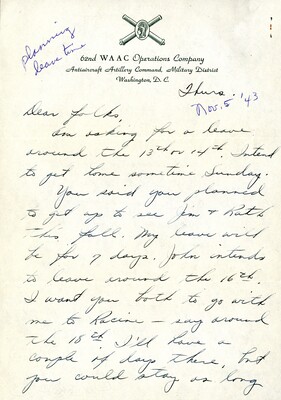 planning
leave time
62nd WAAC Operations Company
Antiaircraft Artillery Command, Military District
Washington, D. C.
Thurs.
Nov. 5 '43
Dear folks,
Am asking for a leave
around the 13th or 14th. Intend
to get home sometime Sunday.
You said you planned
to get up to see Jim & Ruth
this fall. My leave will
be for 9 days. John intends
to leave around the 16th.
I want you both to go with
me to Racine – say around
the 18th. I'll have a
couple of days there, but
you could stay as long